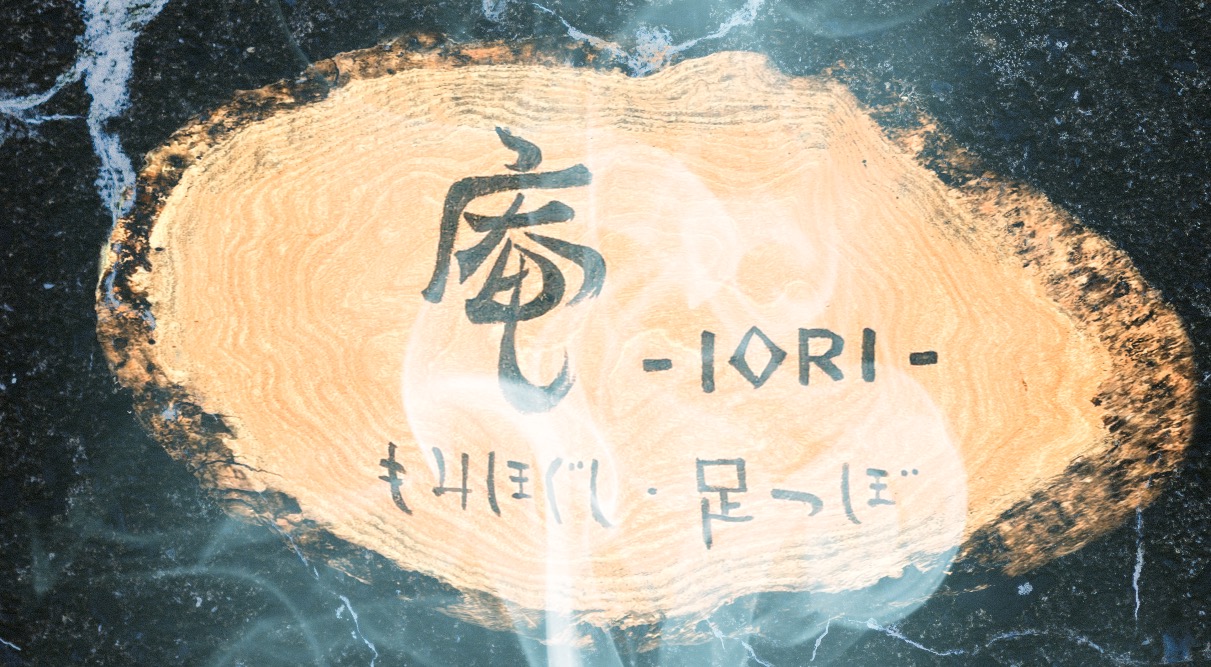 庵 -IORI-
もみほぐし・足つぼ